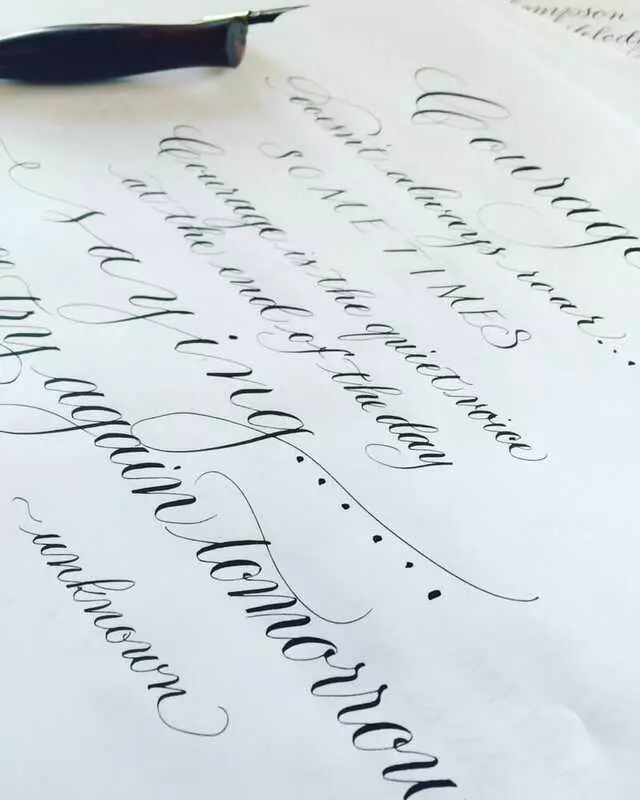 Courage
doesn't always roar...
SOMETIMES
Courage is the quiet voice
at the end of the day
saying......
try again tomorrow
~unknown